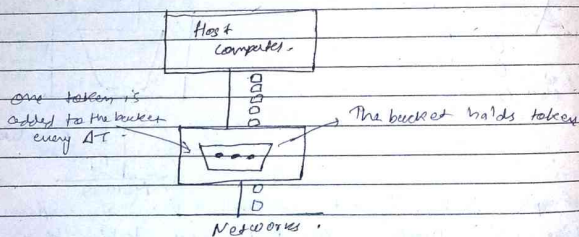 Host
Computer.
one token is
added to the bucket
every ΔT.
The bucket holds token
Networks.